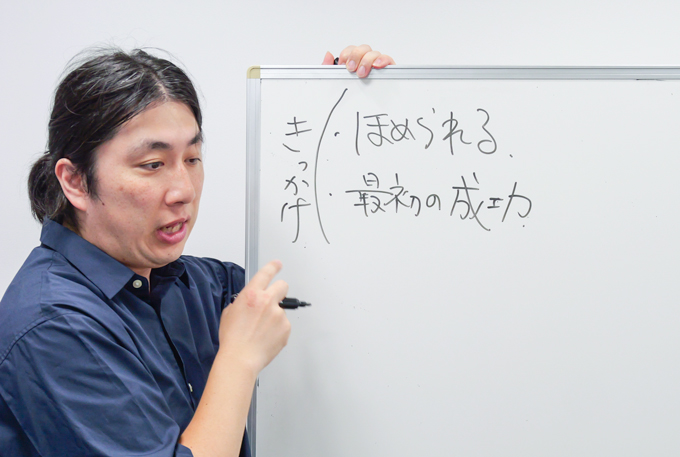 きっかけ
・ほめられる
・最初の成功